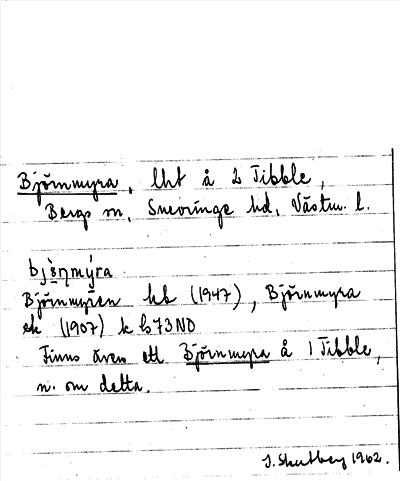 Björnmyra, lht å 2 Tibble,
Bergs sn, Snevringe hd, Västm. l.
bjö̀ṇmýra
Björnmyren hb (1947), Björnmyra
ek (1907) k b73NO
Finns även ett Björnmyra å 1 Tibble,
n. om detta.
1962.